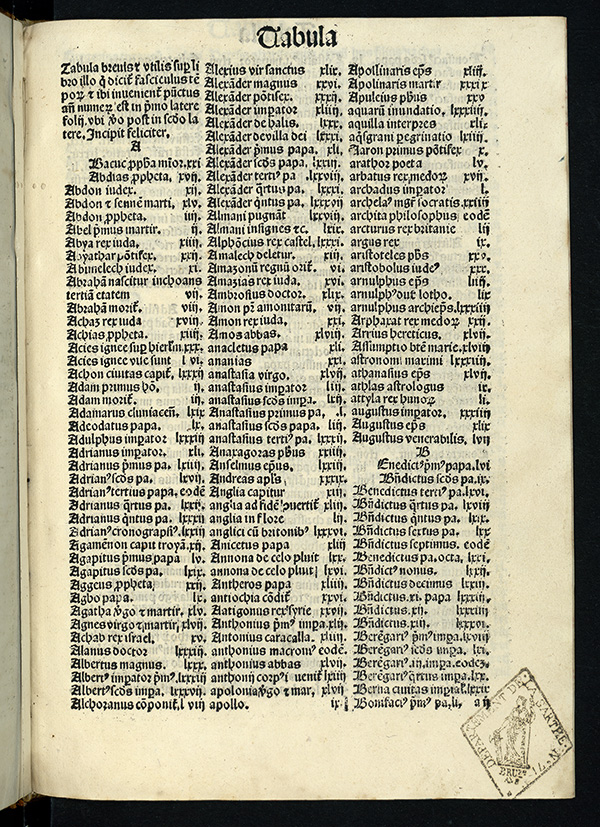 Tabula
Tabula breuis ⁊ vtilis sup li
bro illo q̇ dicit̃ fasciculus tē
poꝝ ⁊ vbi inuenient̃ pūctus
an̄ numeꝝ est in p̃mo latere
folij. vbi v̊o post in scd̃o la
tere. Incipit feliciter.
A
Bacuc ꝓph̃a mi͂oꝛ. xxi
Abdias ꝓpheta. xvij.
Abdon iudex. xij.
Abdon ⁊ senne marti, xlv.
Abdon ꝓpheta. iij.
Abel p̃mus martir. ij.
Abya rex iuda, xiiij.
Abyathar põtifex. xxij.
Abimelech iudex. xj.
Abrahã nascitur inchoans
tertiã etatem vij.
Abrahã moꝛit̃. viij.
Achaz rex iuda xviij.
Achias ꝓpheta. xiij.
Acies ignee sup hierl̃m xxx.
Acies ignee vise sunt lvi.
Achon ciuitas capit̃. lxxxj
Adam primus hõ. ij.
Adam moꝛit̃ iij.
Adamarus cluniaceñ. lxix
Adeodatus papa. lx.
Adulphus imꝑatoꝛ lxxxij
Adrianus imꝑatoꝛ. xli.
Adrianus p̃mus pa. lxiij.
Adrian⁹ scd̃s pa. lxvij.
Adrian⁹ tertius papa. eodē
Adrianus q̃rtus pa. lxxi.
Adrianus q̃ntus pa. lxxxi
Adrian⁹ cronograps̃. lxxij
Agamēnon capit troyã. xij
Agapitus p̃mus papa lv.
Agapitus scd̃s pa. lxix.
Aggeus ꝓpheta, xxij.
Agbo papa lx.
Agatha v̊go ⁊ martir. xlv.
Agnes virgo ⁊ martir, xlvij
Achab rex israel. xv.
Alanus doctoꝛ lxxiij
Albertus magnus. lxxx.
Albert⁹ imꝑatoꝛ p̃m⁹. lxxxij
Albert⁹ scd̃s imp̃a. lxxxvij
Alchoranus cõponit̃. lviij
Alexius vir sanctus xlix.
Alexãder magnus xxvi.
Alexãder põtifex. xxxij.
Alexãder imꝑatoꝛ xliij
Alexãder de halis. lxxx.
Alexãder de villa dei lxxi.
Alexãder p̃mus papa. xli.
Alexãder scd̃s papa. lxxij.
Alexãder terti⁹ pa. lxxvij
Alexãder q̃rtus pa. lxxxi.
Alexãder q̃ntus pa. lxxxvij
Almani pugnãt lxxvij
Almani insignes ⁊c. lxix.
Alphōcius rex castel. lxxxi.
Amalech deletur. xiij.
Amazonũ regnũ oꝛit̃. vi.
Amazias rex iuda, xvi.
Ambrosius doctoꝛ. xlix.
Amon pr̃ amonitarũ. vij.
Amon rex iuda, xxi.
Amos abbas. xlvij.
anacletus papa xli.
ananias xxi.
anastasia virgo. xlvij.
anastasius imꝑatoꝛ liij
anastasius scd̃s imp̃a. lxij
Anastasius primus pa. .l.
anastasius scd̃s papa. liij
anastasius terti⁹ pa. lxxij.
Anaxagoras ph̃us xxiij
Anselmus ep̃us. lxxij.
Andreas apl̃s xxxix.
Anglia capitur xxij.
anglia ad fidē ɔuertit̃ xliij
anglia in floꝛe lij.
anglici cũ britonib⁹ lxxvi.
Anicetus papa xliij
Annona de celo pluit lxx.
annona de celo pluit lxvi.
Antheros papa xliij
antiochia cõdit̃ xxvi.
Antigonus rex syrie xxvij
Anthonius p̃m⁹ imp̃a. xlij
Antonius caracalla. xliij.
anthonius macroni⁹ eodē.
anthonius abbas xlvij
anthonij coꝛp⁹ iuenit̃ lxiij
apolonia v̊go ⁊ mar, xlvij
apollo. ix.
Apollinaris ep̃s xliij.
Apollinaris martir xxxix
Apuleius ph̃us xxv
aquarũ inundatio. lxxxiij.
aquilla interpres xlj.
aq̃sgrani peregrini⁹ lxxiij.
Aaron primus põtifex x.
arathoꝛ poeta lv.
arbatus rex medoꝝ xvj.
archadus imꝑatoꝛ l.
archela⁹ mgr̃ socratis. xxiij
archita philosophus eodē
arcturus rex britanie lij
argus rex ix.
aristoteles ph̃s xxv.
aristobolus iude⁹ xxx.
arnulphus ep̃s liij.
arnulph⁹ dux lotho. lix
arnulphus archiep̃s. lxxiij
Arphaxat rex medoꝝ xxij
Arrius hereticus. xlvij.
Assumptio bt̃e marie. xlviij
astronomi maximi lxxiij
athanasius ep̃s xlvij.
athlas astrologus ix.
attyla rex hunoꝝ li.
augustus imꝑatoꝛ. xxxiij
augustus ep̃s xlix
Augustus venerabilis. lvij
B
Enedict⁹ p̃m⁹ papa. lvi
Bñdictus scd̃s pa. ix.
Benedictus terti⁹ pa. lxvi.
Bñdictus q̃rtus pa. lxviij
Bñdictus q̃ntus pa. lxix.
Bñdictus sextus pa. lxx
Bñdictus septimus. eodē
Benedictus pa. octa. lxxi.
Bñdict⁹ nonus. lxxij
Bñdictus decimus lxxij.
Bñdictus. xi. papa lxxxiij.
Bñdictus. xij. lxxxiij
Bñdictus. xiij. lxxxvi.
Berēgari⁹ p̃m⁹ imp̃a. lxviij
Berēgari⁹ scd̃s imp̃a. lxi.
Berēgari⁹. iij. imp̃a. eodeȝ.
Berēgari⁹ q̃rtus imp̃a. lxx
Berna ciuitas impial̃ lxxix
Bonifaci⁹ p̃m⁹ pa. li.
a ij
DEPARTEMENT DE LA SARTHE.